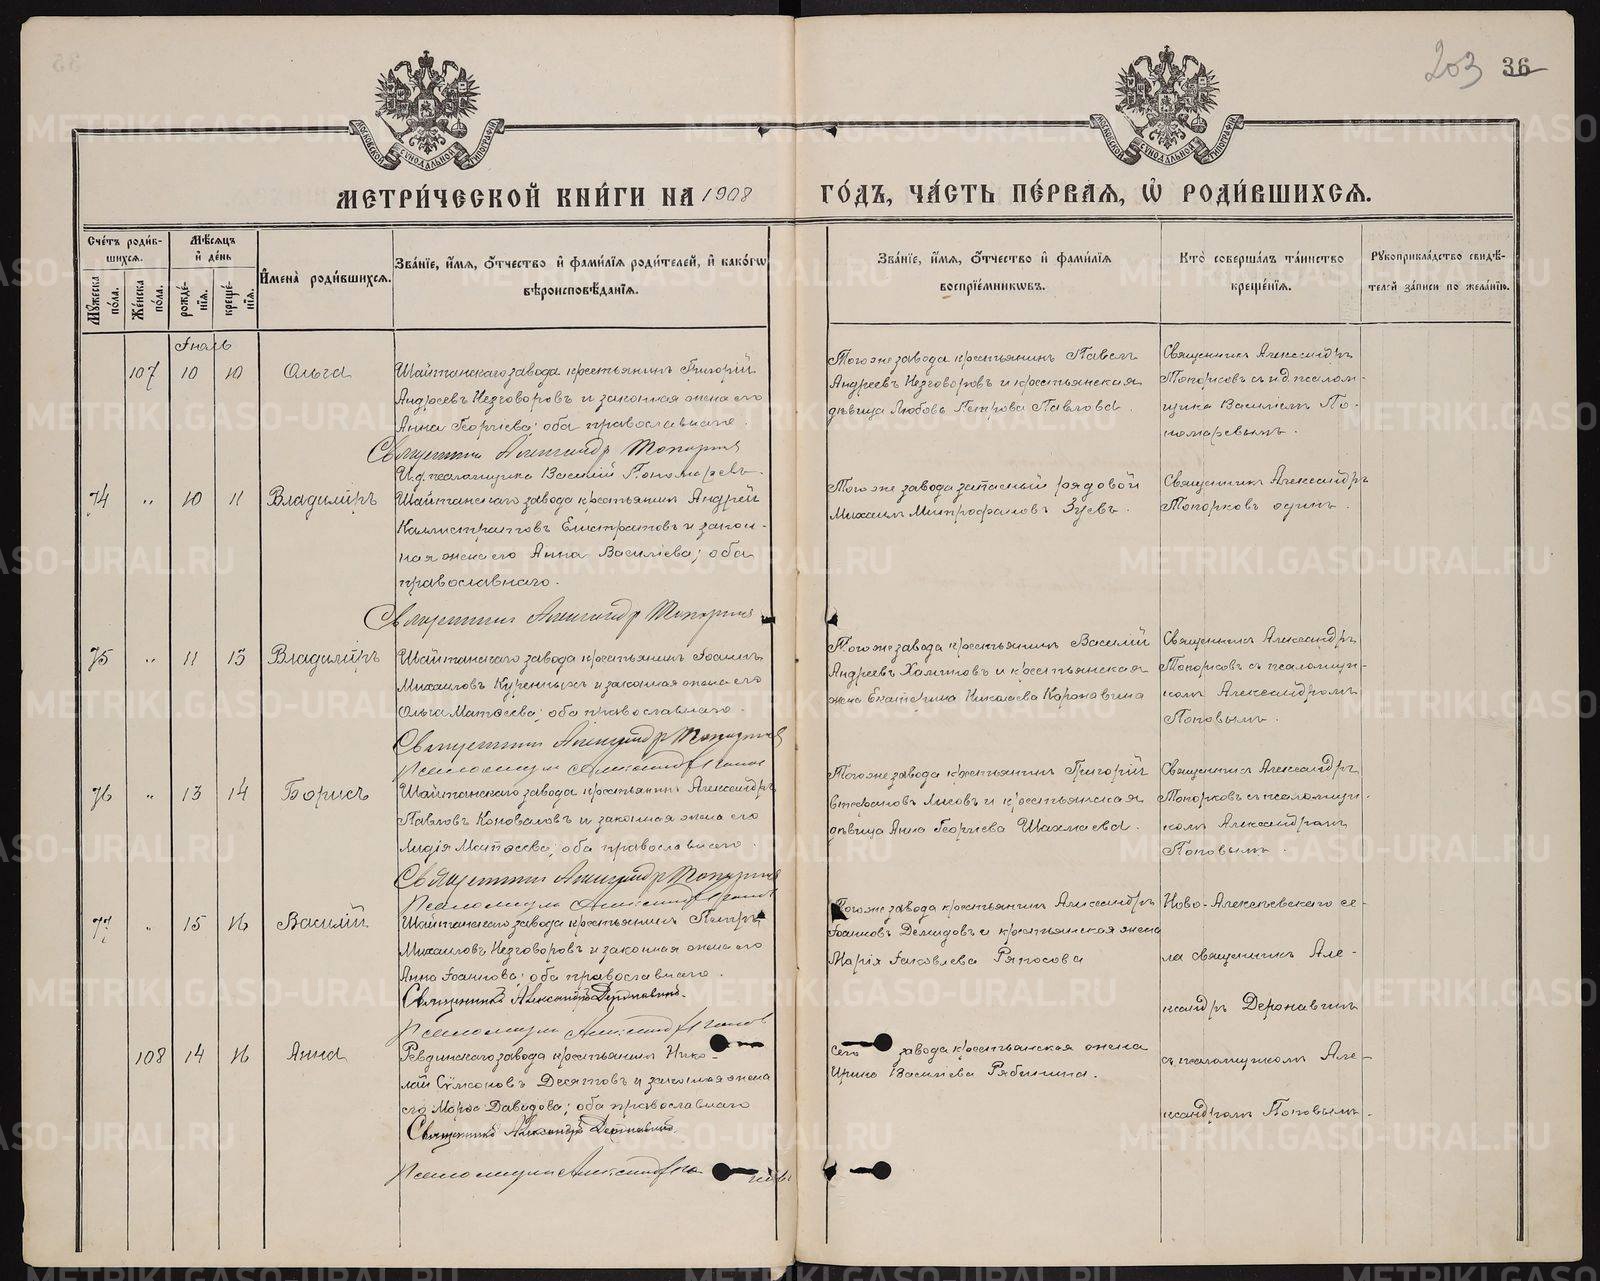 203 36
МОСКОВСКОЙ СУНОДАЛЬНОЙ ТИПОГРАФІИ
МОСКОВСКОЙ СУНОДАЛЬНОЙ ТИПОГРАФІИ
МЕТРИ́ЧЕСКОЙ КНИ́ГИ НА 1908 ГО́ДЪ, ЧА́СТЬ ПЕ́РВАѦ, Ѡ РОДИ́ВШИХСѦ.
Сче́тъ роди́в-
шихсѧ.
Мѣ́сѧцъ
и де́нь
Мꙋ́жеска по́ла.
Же́нска по́ла.
рожде́-
нїѧ.
креще́-
нїѧ.
Имена̀ роди́вшихсѧ.
Зва́нїе, и́мѧ, о́тчество и фами́лїѧ роди́телей, и како́гѡ
вѣроисповѣ́данїѧ.
Зва́нїе, и́мѧ, о́тчество и фами́лїѧ
воспрїе́мникѡвъ.
Кто̀ соверша́лъ та́инство
креще́нїѧ.
Рꙋкоприкла́дство свидѣ́-
телей за́писи по жела́нїю.
Іюль
107 10 10 Ольга
Шайтанскаго завода крестьянинъ Григорій
Андреевъ Незговоровъ и законная жена его
Анна Георгіева; оба православнаго.
Священникъ Александръ Топорковъ
И.д. псаломщика Василій Пономаревъ.
Того же завода крестьянинъ Павелъ
Андреевъ Незговоровъ и крестьянская
дѣвица Любовь Петрова Павлова.
Священникъ Александръ
Топорковъ съ и.д. псалом-
щика Василіемъ По-
номаревымъ.
74 " 10 11 Владиміръ
Шайтанскаго завода крестьянинъ Андрей
Каллистратовъ Елистратовъ и закон-
ная жена его Анна Василіева; оба
православнаго.
Священникъ Александръ Топорковъ
Того же завода запасный рядовой
Михаилъ Митрофановъ Зуевъ.
Священникъ Александръ
Топорковъ одинъ.
75 " 11 13 Владиміръ
Шайтанскаго завода крестьянинъ Іоаннъ
Михаиловъ Куренныхъ и законная жена его
Ольга Матѳеева; оба православнаго.
Священникъ Александръ Топорковъ
Псаломщикъ Александръ Поповъ
Того же завода крестьянинъ Василій
Андреевъ Халитовъ и крестьянская
жена Екатерина Николаева Коровина
Священникъ Александръ
Топорковъ съ псаломщи-
комъ Александромъ
Поповымъ.
76 " 13 14 Борисъ
Шайтанскаго завода крестьянинъ Александръ
Павловъ Коноваловъ и законная жена его
Лидія Матѳеева; оба православнаго.
Священникъ Александръ Топорковъ
Псаломщикъ Александръ Поповъ
Того же завода крестьянинъ Григорій
Стефановъ Лисовъ и крестьянская
дѣвица Анна Георгіева Шахмаева.
Священникъ Александръ
Топорковъ съ псаломщи-
комъ Александромъ
Поповымъ.
77 " 15 16 Василій
Шайтанскаго завода крестьянинъ Петръ
Михаиловъ Незговоровъ и законная жена его
Анна Іоаннова; оба православнаго.
Священникъ Александръ Державинъ.
Псаломщикъ Александръ Поповъ
Того же завода крестьянинъ Александръ
Іоанновъ Демидовъ и крестьянская жена
Марія Іаковлева Ряпосова
Ново-Алексѣевскаго се-
ла священникъ Але-
ксандръ Державинъ
съ псаломщикомъ Але-
ксандромъ Поповымъ.
108 14 16 Анна
Ревдинскаго завода крестьянинъ Нико-
лай Сѵмеоновъ Десятовъ и законная жена
его Мавра Давидова; оба православнаго
Священникъ Александръ Державинъ.
Псаломщикъ Александръ Поповъ
Сего завода крестьянская жена
Ирина Василіева Рябинина.
METRIKI.GASO-URAL.RU